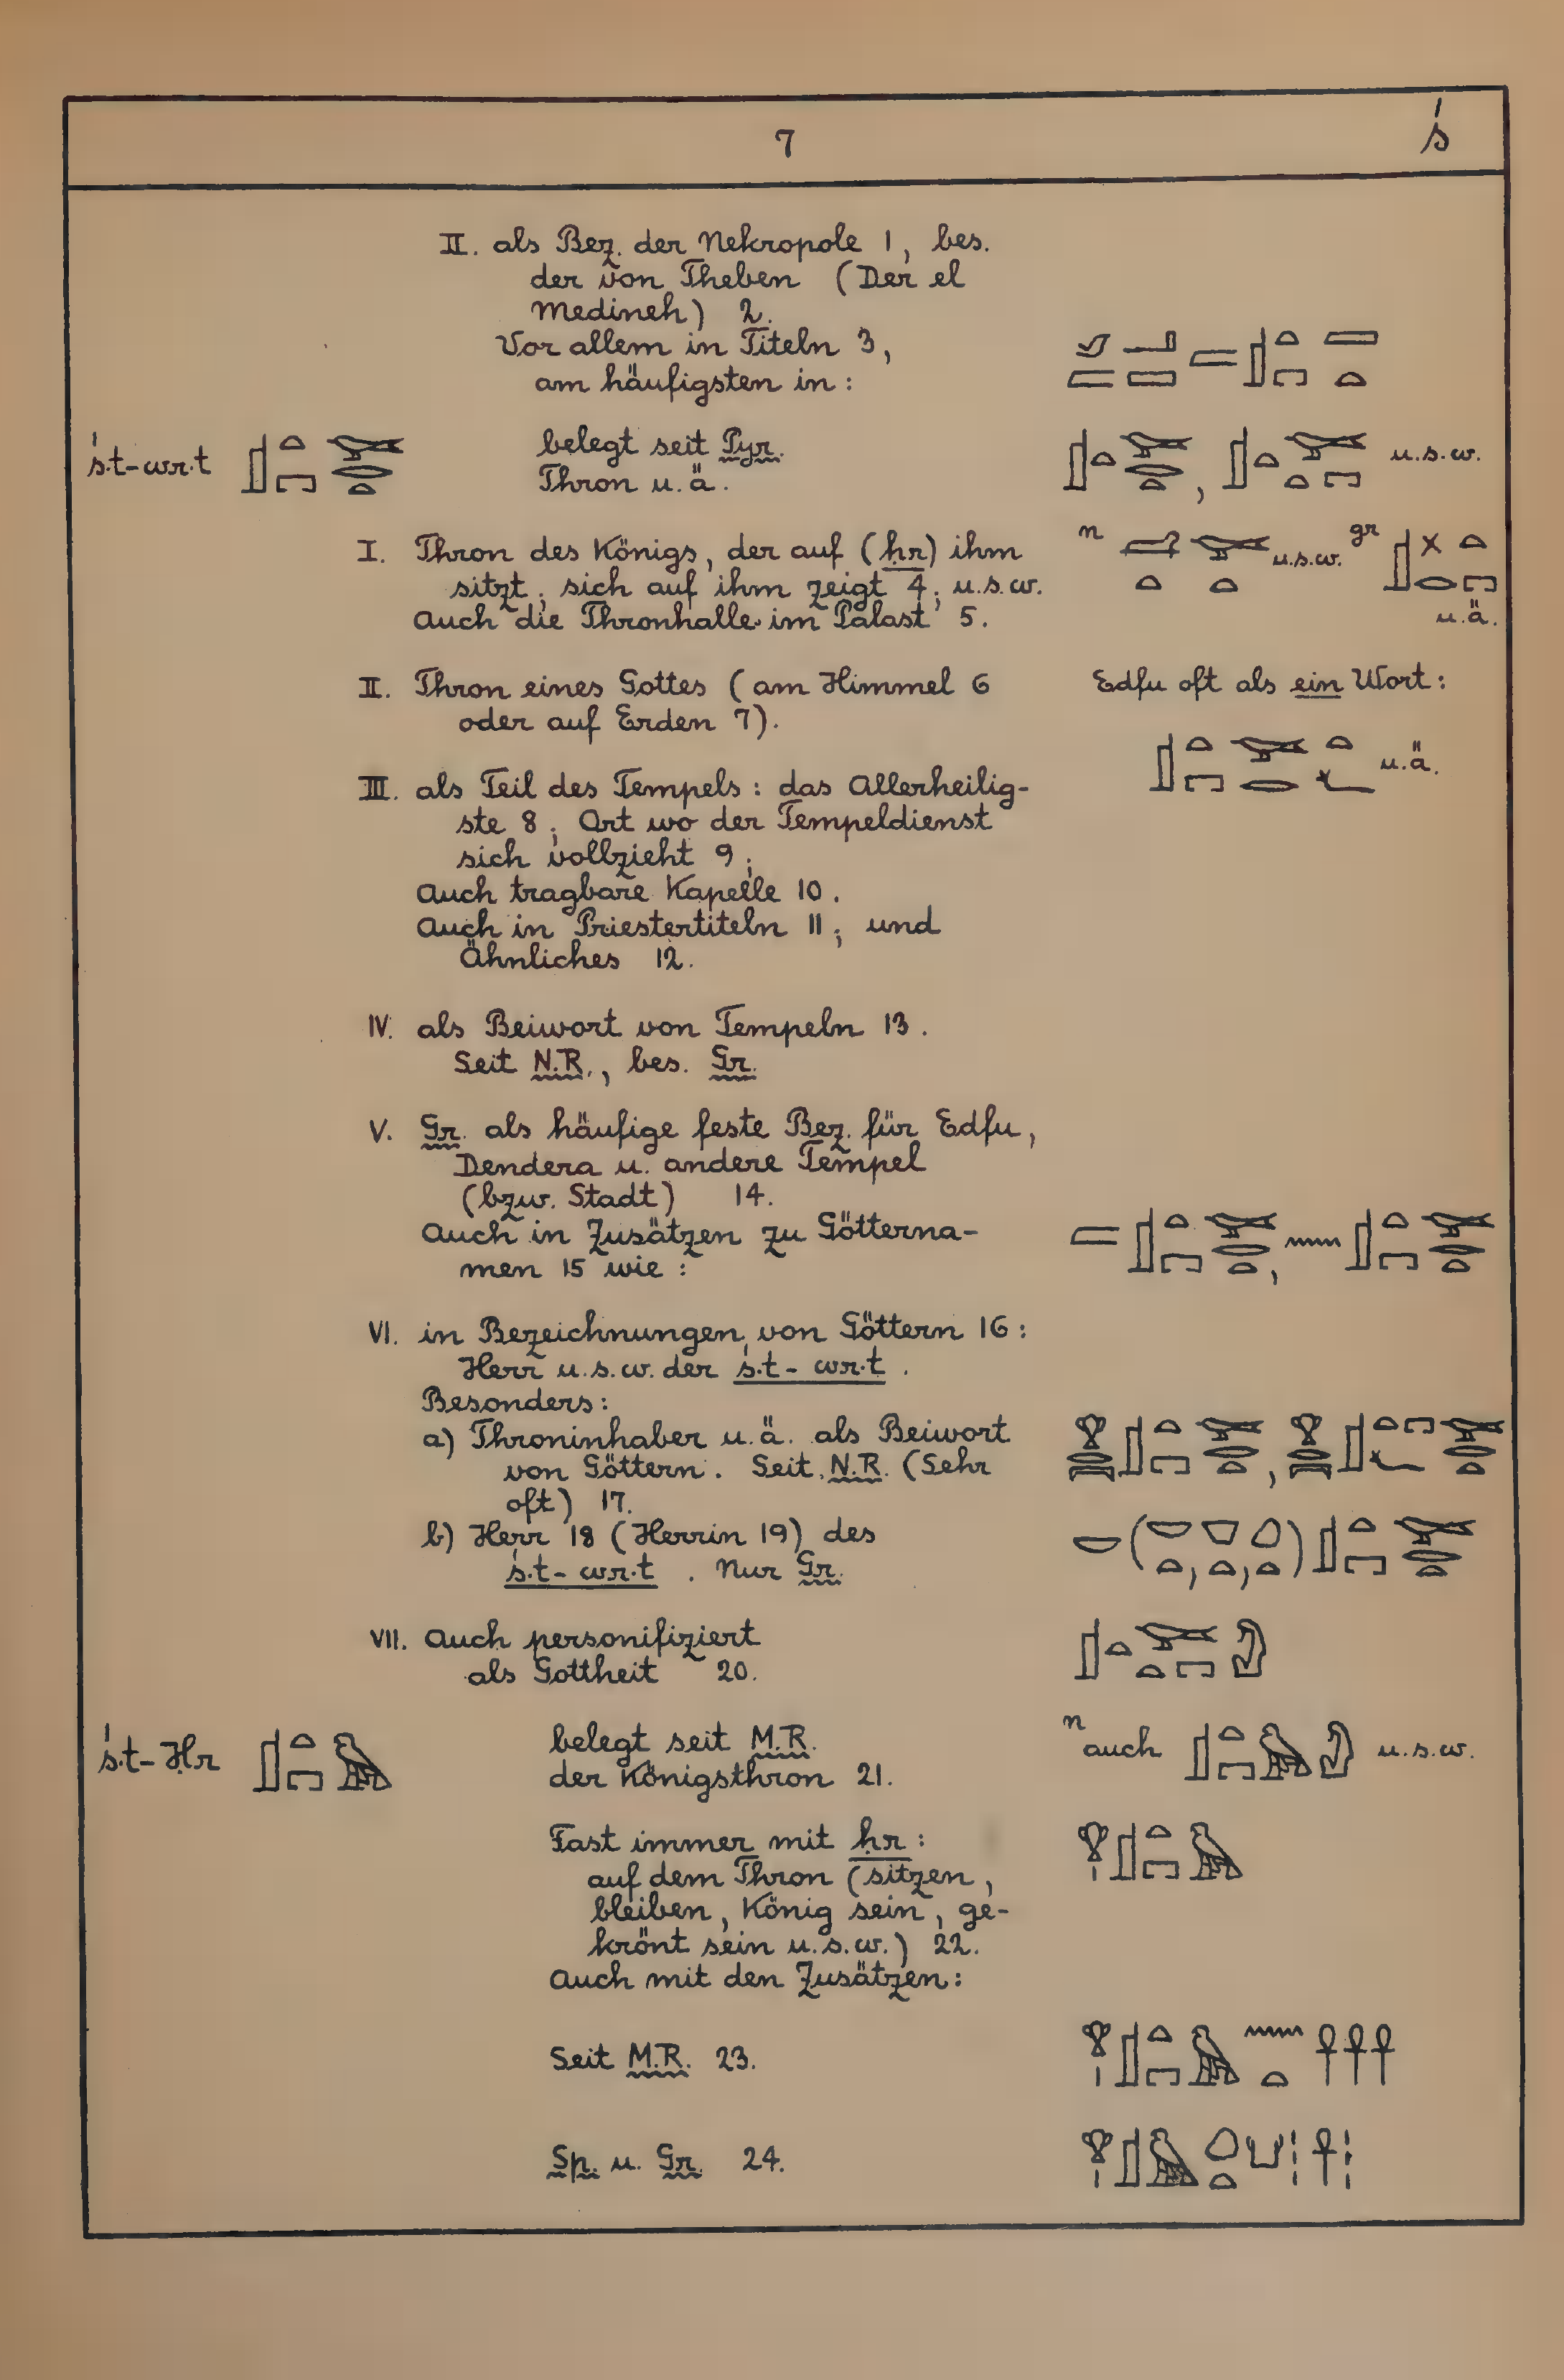 7 ś
II. als Bez. der Nekropole 1, bes.
der von Theben (Der el
Medineh) 2.
Vor allem in Titeln 3,
am häufigsten in:
ś.t-wr.t 𓊨𓏏𓉐𓅨𓂋𓏏 belegt seit Pyr. 𓊨𓏏𓅨𓂋𓏏, 𓊨𓏏𓅨𓏏𓉐 u.s.w.
Thron u.ä.
I. Thron des Königs, der auf (ḥr) ihm n u.s.w. gr
sitzt; sich auf ihm zeigt 4; u.s.w.
Auch die Thronhalle im Palast 5. u.ä.
II. Thron eines Gottes (am Himmel 6 Edfu oft als ein Wort:
oder auf Erden 7).
u.ä.
III. als Teil des Tempels: das Allerheilig-
ste 8; Ort wo der Tempeldienst
sich vollzieht 9;
Auch tragbare Kapelle 10.
Auch in Priestertiteln 11; und
Ähnliches 12.
IV. als Beiwort von Tempeln 13.
Seit N.R., bes. Gr.
V. Gr. als häufige feste Bez. für Edfu,
Dendera u. andere Tempel
(bzw. Stadt) 14.
Auch in Zusätzen zu Götterna- 𓐛𓊨𓏏𓉐𓅨𓂋𓏏, 𓈖𓊨𓏏𓉐𓅨𓂋𓏏
men 15 wie:
VI. in Bezeichnungen von Göttern 16:
Herr u.s.w. der ś.t-wr.t.
Besonders:
a) Throninhaber u.ä. als Beiwort
von Göttern. Seit N.R. (Sehr
oft) 17.
b) Herr 18 (Herrin 19) des
ś.t-wr.t. Nur Gr.
VII. Auch personifiziert
als Gottheit 20.
ś.t-Ḥr 𓊨𓏏𓉐𓅃 belegt seit M.R. n auch u.s.w.
der Königsthron 21.
Fast immer mit ḥr: 𓁷𓏤𓊨𓏏𓉐𓅃
auf dem Thron (sitzen,
bleiben, König sein, ge-
krönt sein u.s.w.) 22.
Auch mit den Zusätzen:
Seit M.R. 23. 𓁷𓏤𓊨𓏏𓉐𓅃𓈖𓏏𓋹𓋹𓋹
Sp. u. Gr. 24.